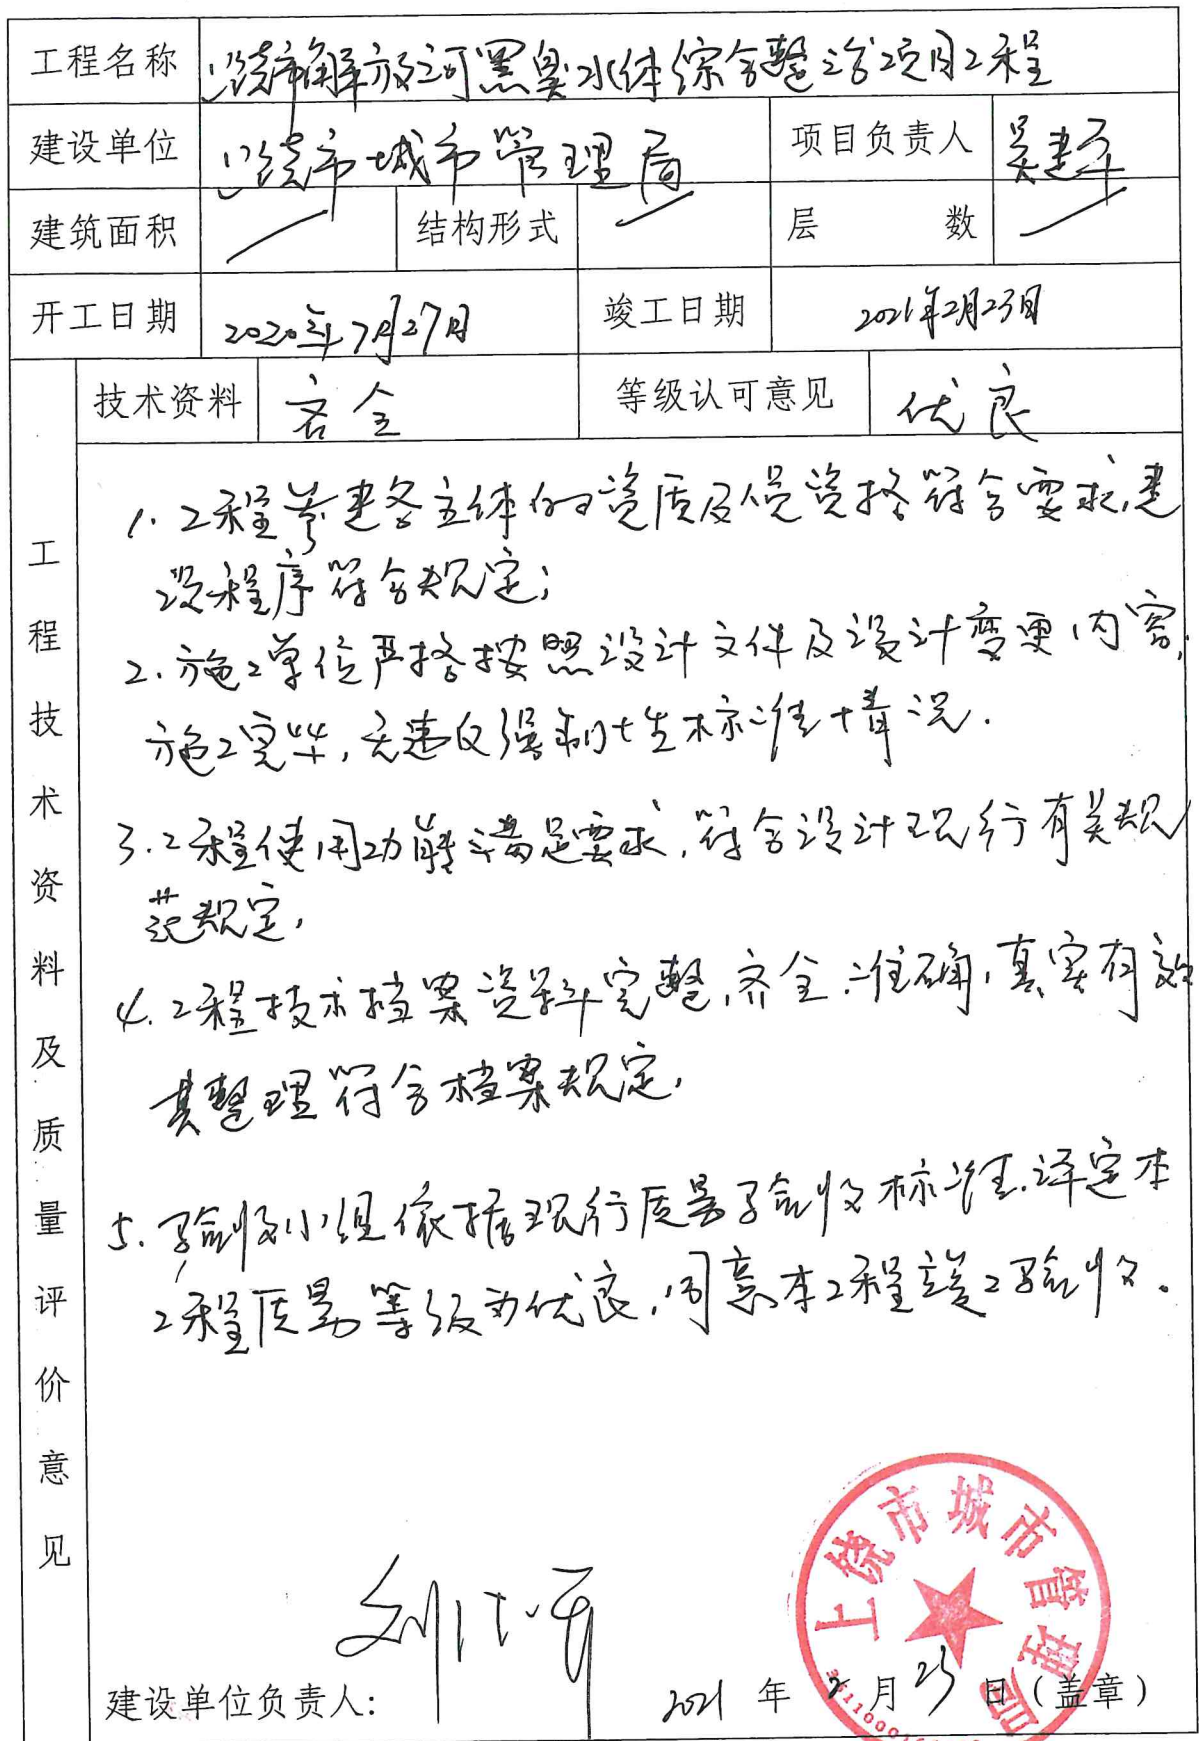 工程名称 上饶市解放河黑臭水体综合整治项目工程
建设单位 上饶市城市管理局 项目负责人 吴建平
建筑面积 / 结构形式 / 层 数 /
开工日期 2020年7月27日 竣工日期 2021年2月23日
技术资料 齐全 等级认可意见 优良
工程技术资料及质量评价意见
1.工程参建各主体的资质及人员资格符合要求,建
设程序符合规定;
2.施工单位严格按照设计文件及设计变更内容,
施工完毕,无违反强制性标准情况.
3.工程使用功能满足要求,符合设计现行有关规
范规定,
4.工程技术档案资料完整,齐全,准确,真实有效
其整理符合档案规定,
5.验收小组依据现行质量验收标准,评定本
工程质量等级为优良,同意本工程竣工验收。
上饶市城市管理局
建设单位负责人:
2021 年 2 月 23 日(盖章)